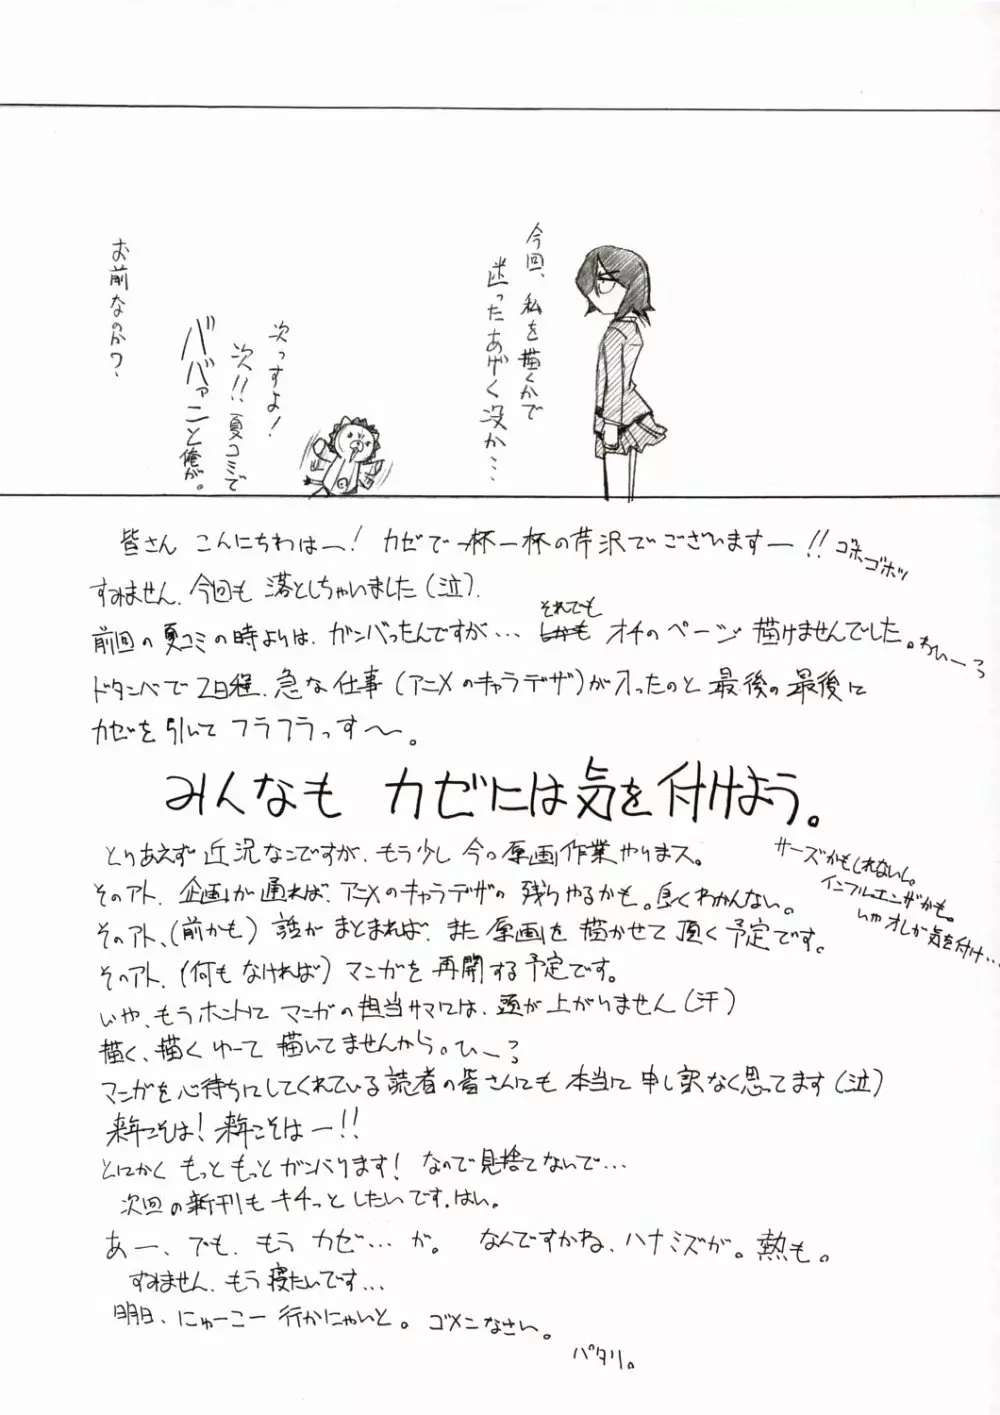 今回、私を描くかで
迷ったあげく没か…
次っすよ!
次!!夏コミで
ババァニと俺が。
お前なのか?
皆さん こんにちわはー! カゼで一杯一杯の芹沢でございますー!!
ゴホゴホッ
すみません、今回も 落としちゃいました(泣)
それでも
前回の夏コミの時よりは、ガンバったんですが… しかも オチのページ 描けませんでした。
ドタンバで2日程、急な仕事(アニメのキャラデザ)が入ったのと 最後の最後に
カゼを引いて フラフラっす〜。
みんなも カゼには気を付けよう。
とりあえず 近況なこですが、もう少し 今の原画作業やりまス。
サーズかもしれないし。
インフルエンザかも。
いやオレが気を付け…
そのアト、企画が通れば、アニメのキャラデザの 残りやるかも。良くわかんない。
そのアト、(前かも) 話が まとまれば、また 原画を 描かせて 頂く予定です。
そのアト、(何もなければ) マンガを 再開する予定です。
いや、もうホントに マンガの担当サマには、頭が上がりません(汗)
描く、描くゆーて 描いてませんから。ひーっ
マンガを心待ちにしてくれている 読者の皆さんにも 本当に 申し訳なく思ってます(泣)
来年こそは! 来年こそはー!!
とにかく もっと もっと ガンバります! なので見捨てないで…
次回の新刊も キチっと したいです、はい。
あー、でも、もう カゼ…が。 なんですかね、ハナミズが。熱も。
すみません、もう 寝たいです…
明日、にゅーこー 行かにゃいと。 ゴメンなさい。
パタリ。